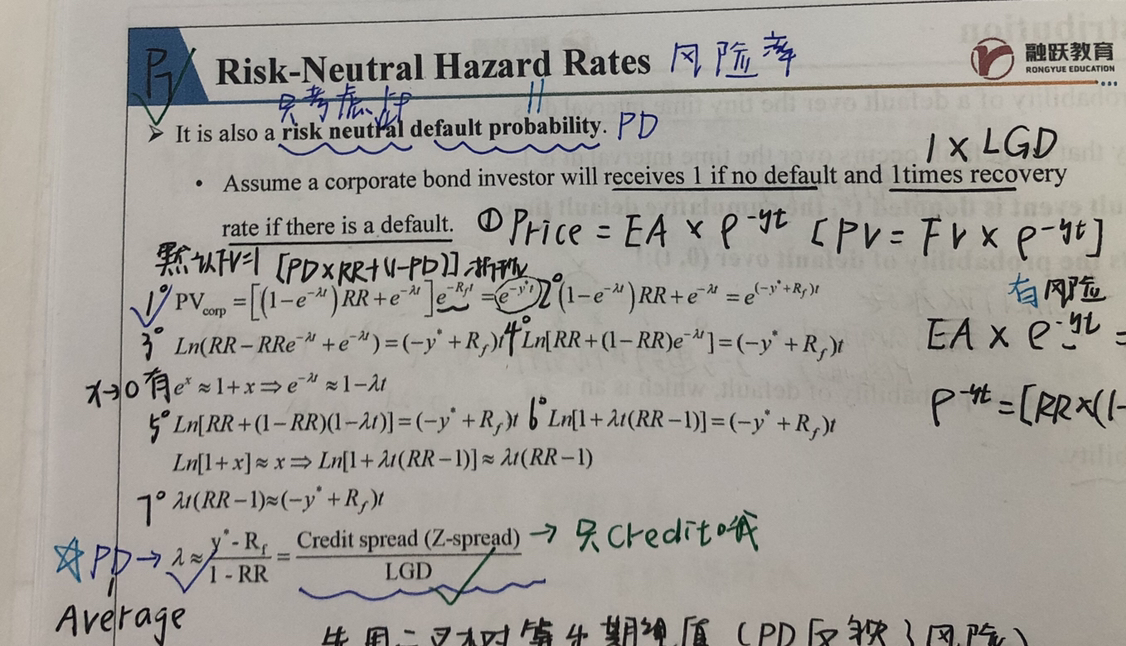 P1
Risk-Neutral Hazard Rates 风险率
融跃教育
RONGYUE EDUCATION
只考虑
➢ It is also a risk neutral default probability. PD
1 × LGD
• Assume a corporate bond investor will receives 1 if no default and 1times recovery
rate if there is a default. ① Price = EA × e^{-yt} [PV = FV × e^{-yt}]
默认FV=1 [PD×RR+(1-PD)]
1° PV_{corp} = [(1-e^{-λt})RR+e^{-λt}]e^{-R_f t} = e^{-y*t} 2° (1-e^{-λt})RR+e^{-λt} = e^{(-y*+R_f)t}
有风险
3° Ln(RR-RRe^{-λt}+e^{-λt})=(-y*+R_f)t 4° Ln[RR+(1-RR)e^{-λt}]=(-y*+R_f)t
EA × e^{-yt} =
x→0 有 e^x ≈1+x⇒e^{-λt} ≈1-λt
e^{-yt} = [RR×(1-
5° Ln[RR+(1-RR)(1-λt)]=(-y*+R_f)t 6° Ln[1+λt(RR-1)]=(-y*+R_f)t
Ln[1+x]≈x⇒Ln[1+λt(RR-1)]≈λt(RR-1)
7° λt(RR-1)≈(-y*+R_f)t
☆PD→ λ≈ (y*-R_f)/(1-RR) = Credit spread (Z-spread)/LGD → 只credit
Average